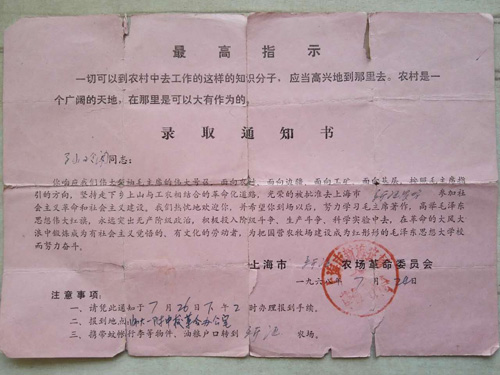 最高指示
一切可以到农村中去工作的这样的知识分子，应当高兴地到那里去。农村是一
个广阔的天地，在那里是可以大有作为的。
录取通知书
同志：
你响应我们伟大领袖毛主席的伟大号召，面向农村，面向边疆，面向工矿，面向基层，按照毛主席指
引的方向，坚持走下乡上山与工农相结合的革命化道路，光荣的被批准去上海市 参加社
会主义革命和社会主义建设。我们热忱地欢迎你，并希望你到场以后，努力学习毛主席著作，高举毛泽东
思想伟大红旗，永远突出无产阶级政治，积极投入阶级斗争、生产斗争、科学实验中去，在革命的大风大
浪中锻炼成为有社会主义觉悟的、有文化的劳动者，为把国营农场建设成为红彤彤的毛泽东思想大学校
而努力奋斗。
上海市 农场革命委员会
一九六 年 7 月 日
注意事项：
一、请凭此通知于 7 月 26 日下午 2 时办理报到手续。
二、报到地点
三、携带蚊帐行李等物件，油粮户口转到 农场。